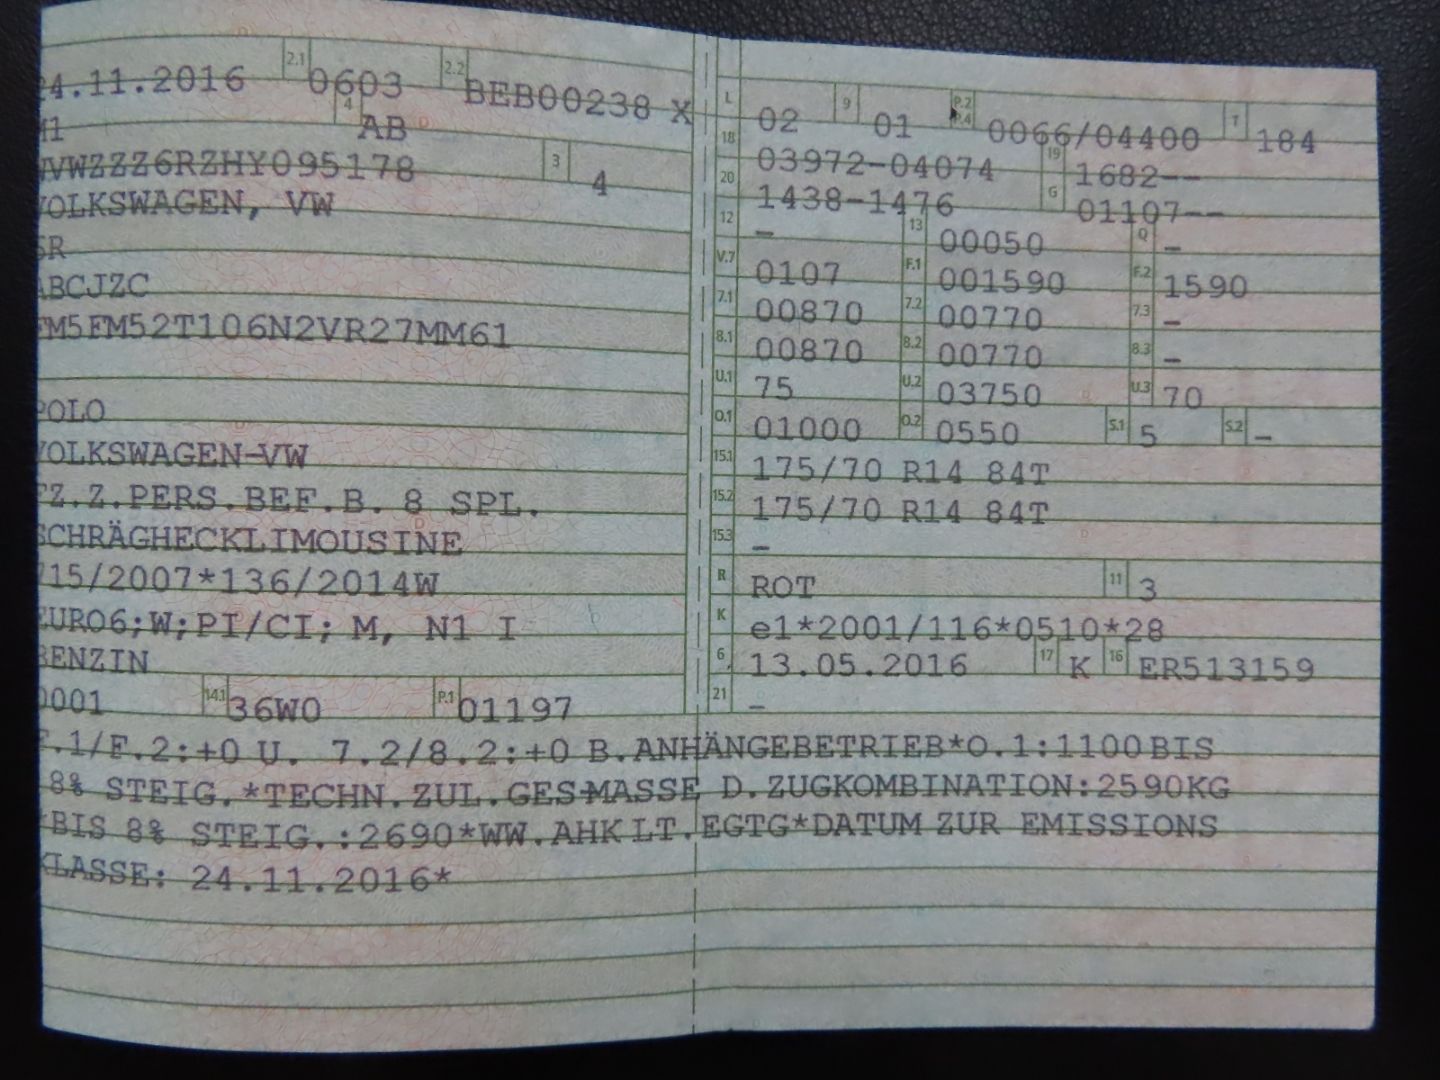 24.11.2016 2.1 0603 2.2 BEB00238 X
M1 4 AB
WVWZZZ6RZHY095178 3 4
VOLKSWAGEN, VW
6R
ABCJZC
FM5FM52T106N2VR27MM61
POLO
VOLKSWAGEN-VW
FZ.Z.PERS.BEF.B. 8 SPL.
SCHRÄGHECKLIMOUSINE
715/2007*136/2014W
EURO6;W;PI/CI; M, N1 I
BENZIN
0001 14.1 36W0 P.1 01197
L 02 9 01 P.2 P.4 0066/04400 T 184
18 03972-04074 19 1682--
20 1438-1476 G 01107--
12 - 13 00050 Q -
V.7 0107 F.1 001590 F.2 1590
7.1 00870 7.2 00770 7.3 -
8.1 00870 8.2 00770 8.3 -
U.1 75 U.2 03750 U.3 70
O.1 01000 O.2 0550 S.1 5 S.2 -
15.1 175/70 R14 84T
15.2 175/70 R14 84T
15.3 -
R ROT 11 3
K e1*2001/116*0510*28
6 13.05.2016 17 K 16 ER513159
21 -
F.1/F.2:+0 U. 7.2/8.2:+0 B.ANHÄNGEBETRIEB*O.1:1100BIS
8% STEIG.*TECHN.ZUL.GES-MASSE D.ZUGKOMBINATION:2590KG
*BIS 8% STEIG.:2690*WW.AHK LT.EGTG*DATUM ZUR EMISSIONS
KLASSE: 24.11.2016*